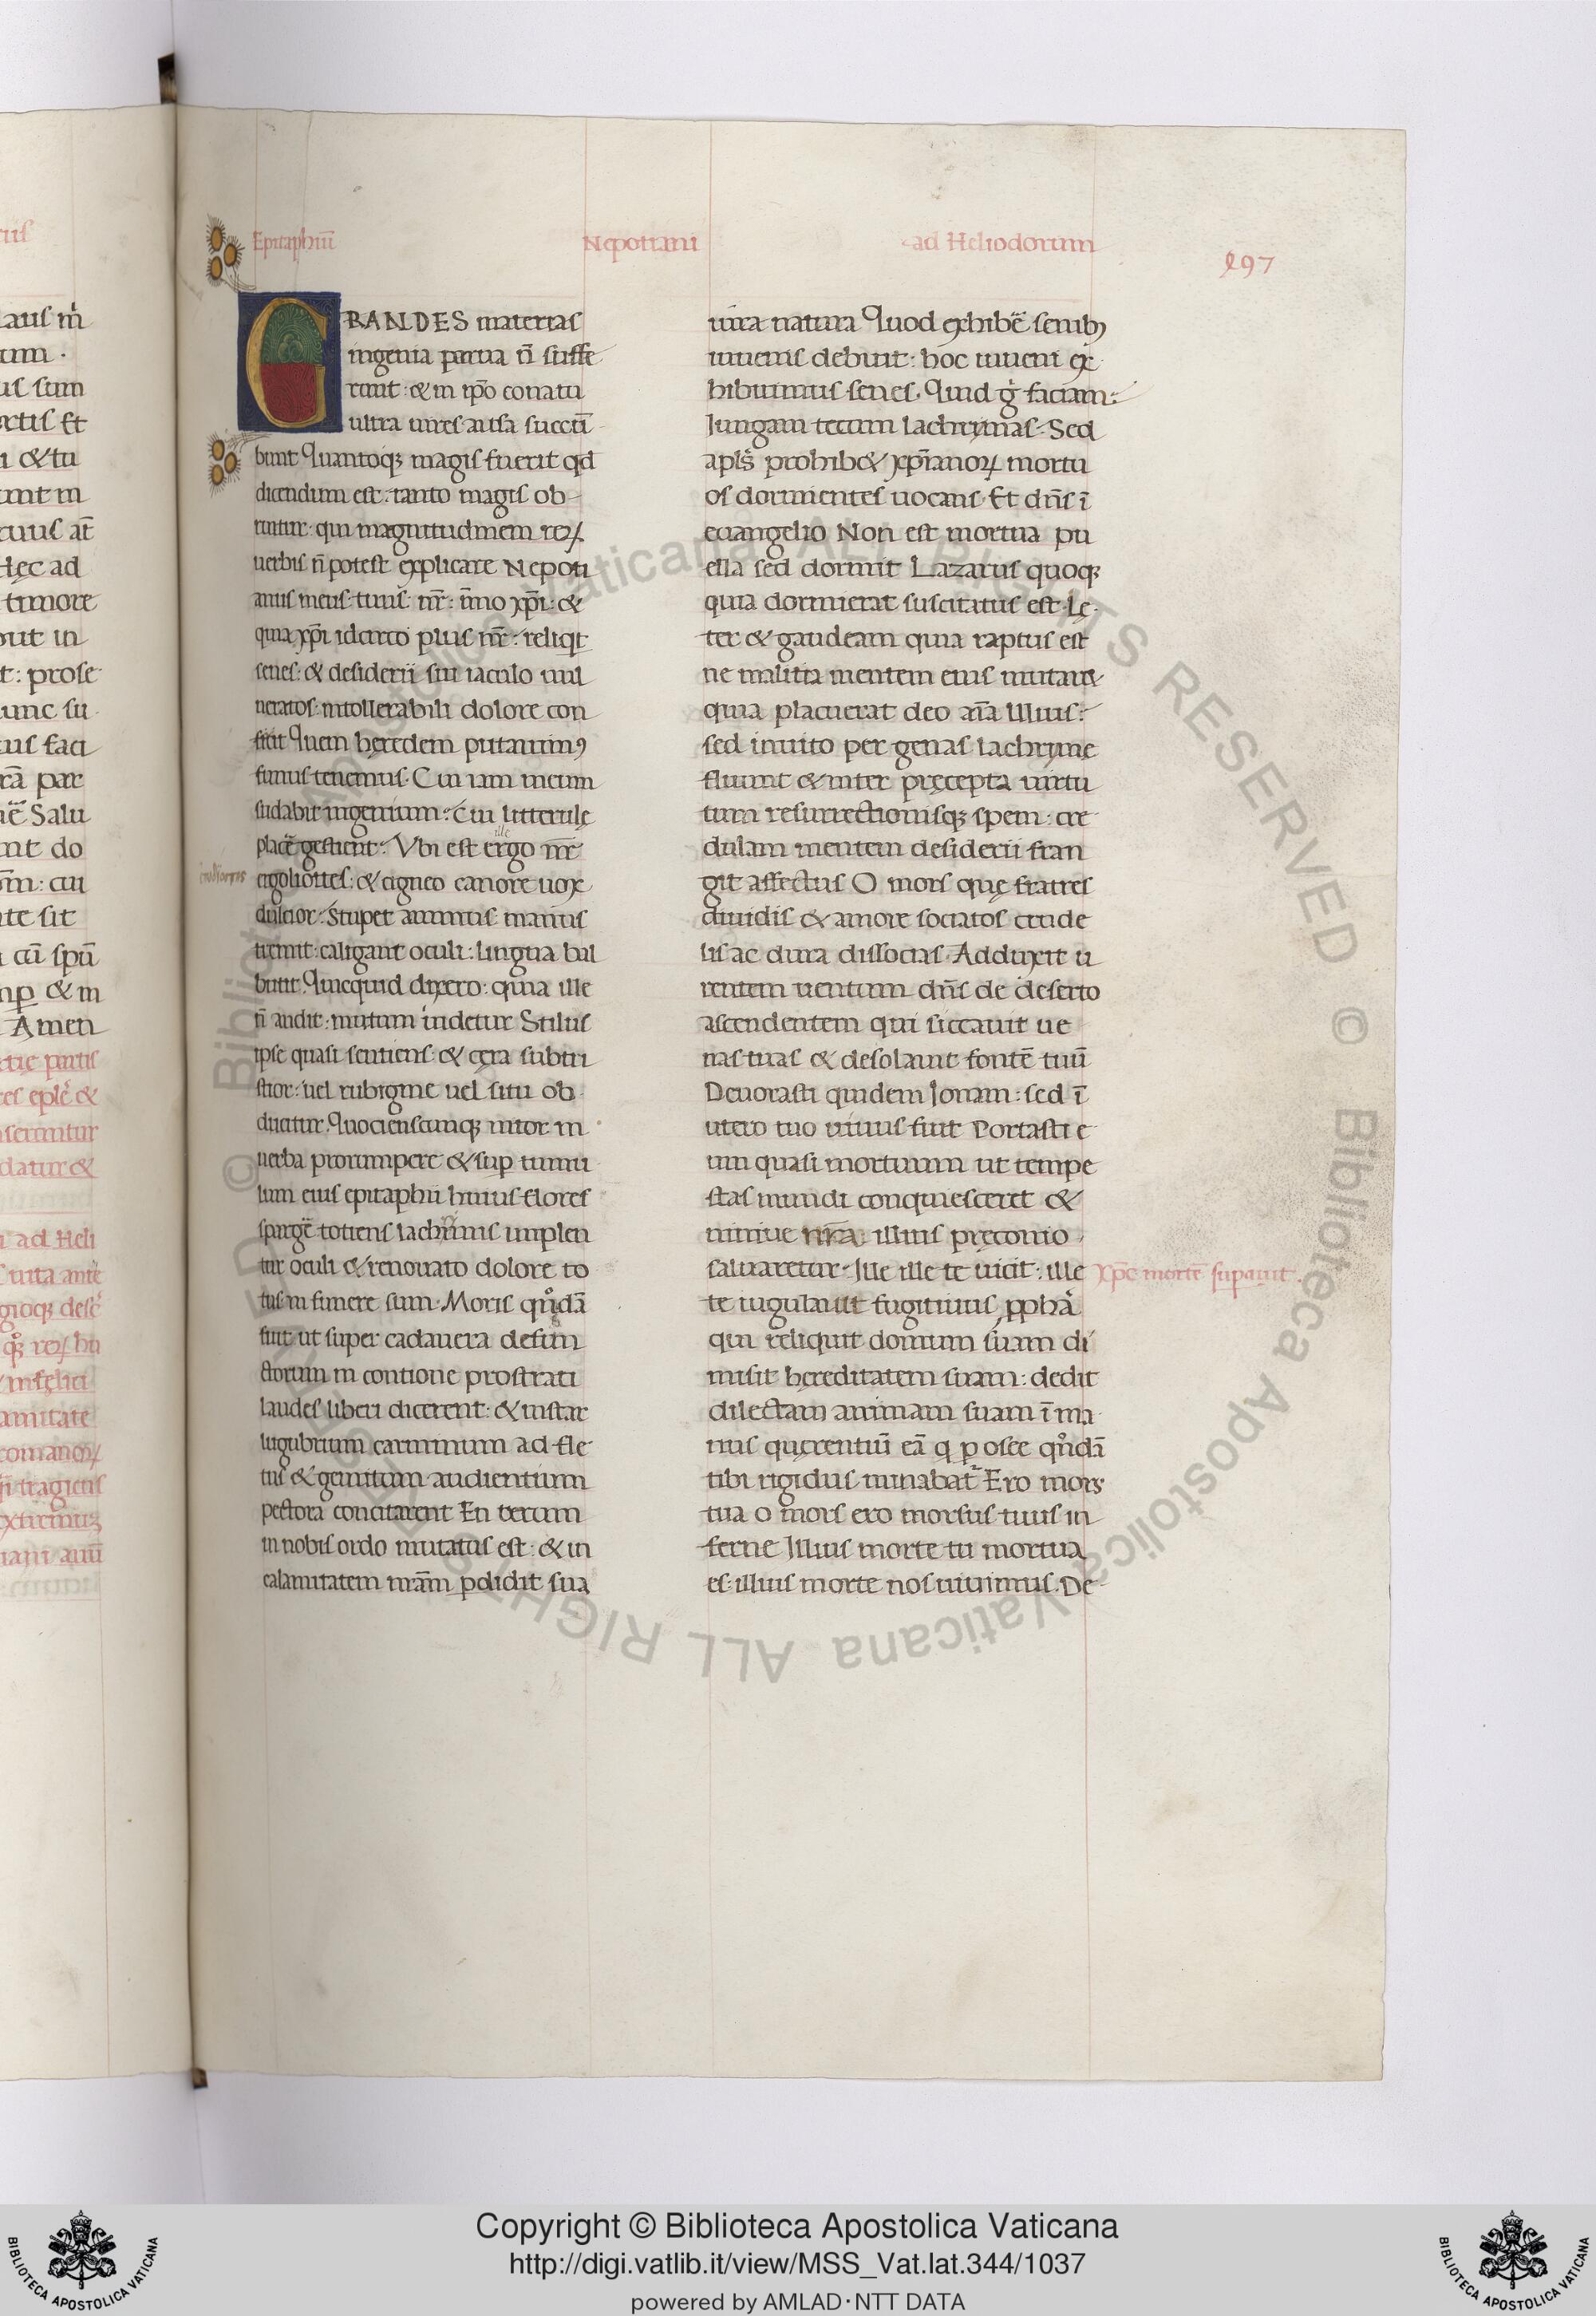 Epitaphiū Nepotiani ad Heliodorum
297
GRANDES materias
ingenia parua n̄ suffe
runt: & in ip̄o conatu
ultra uires ausa succū
bunt Quantoqꝫ magis fuerit qd
dicendum est: tanto magis ob-
ruitur qui magnitudinem reꝝ
uerbis n̄ potest explicare Nepoti
anus meus tuus nr̄: īmo xp̄i: &
quia xp̄i idcirco plus nr̄: reliqt
senes: & desiderii sui iaculo uul
neratos: intollerabili dolore con
fecit Quem hęredem putauimꝰ
funus tenemus. Cui iam meum
sudabit ingenium: Cui litterulę
placē gestient: Vbi est ille ergo nr̄
ergoliottes: & cigneo canore uox
dulcior: Stupet animus manus
tremit: caligant oculi: lingua bal
butit. Quicquid dixero: quia ille
n̄ audit: mutum uidetur Stilus
ipse quasi sentiens: & cęra subtri
stior: uel rubigine uel situ ob
ducitur. Quotienscunqꝫ nitor in
uerba prorumpere & suꝑ tumu
lum eius epitaphii huius flores
spargē totiens lachrimis implen
tur oculi & renouato dolore to
tus in funere sum. Moris qn̊dā
fuit ut super cadauera defun
ctorum in contione prostrati
laudes liberi dicerent: & instar
lugubrium carminum ad fle
tus & gemitum audientium
pectora concitarent En rerum
in nobis ordo mutatus est: & in
calamitatem nr̄am ꝑdidit sua
iura natura Quod exhibē senibꝫ
iuuenis debuit: hoc iuueni ex
hibuimus senes. Quid g̊ faciam:
Iungam tecum lachrymas. Sed
apl̄s prohib& xp̄ianoꝝ mortu
os dormientes uocans Et dn̄s ī
euangelio Non est mortua pu
ella sed dormit Lazarus quoqꝫ
quia dormierat suscitatus est. Lę
ter & gaudeam quia raptus est
ne malitia mentem eius mutar&
quia placuerat deo aīa illius:
sed inuito per genas lachryme
fluunt & inter pręcepta uirtu
tum resurrectionisqꝫ spem: cre
dulam mentem desiderii fran
git affectus O mors quę fratres
diuidis & amore sociatos crude
lis ac dura dissocias. Adduxit u
rentem uentum dn̄s de deserto
ascendentem qui siccauit ue
nas tuas & desolauit fontē tuū
Deuorasti quidem Ionam: sed ī
utero tuo uiuus fuit Portasti e
um quasi mortuum ut tempe
stas mundi conquiesceret &
niniue nr̄a illius pręconio
saluaretur. Ille ille te uicit: ille
xp̄c mortē suꝑauit.
te iugulauit fugitiuus ꝓpha
qui reliquit domum suam di
misit hęreditatem suam: dedit
dilectam animam suam ī ma
nus quęrentiū eā q ꝑ osee qn̊dā
tibi rigidus minabat̄ Ero mors
tua o mors ero morsus tuus in
ferne Illius morte tu mortua
es: illius morte nos uiuimus. De
Copyright © Biblioteca Apostolica Vaticana
http://digi.vatlib.it/view/MSS_Vat.lat.344/1037
powered by AMLAD·NTT DATA